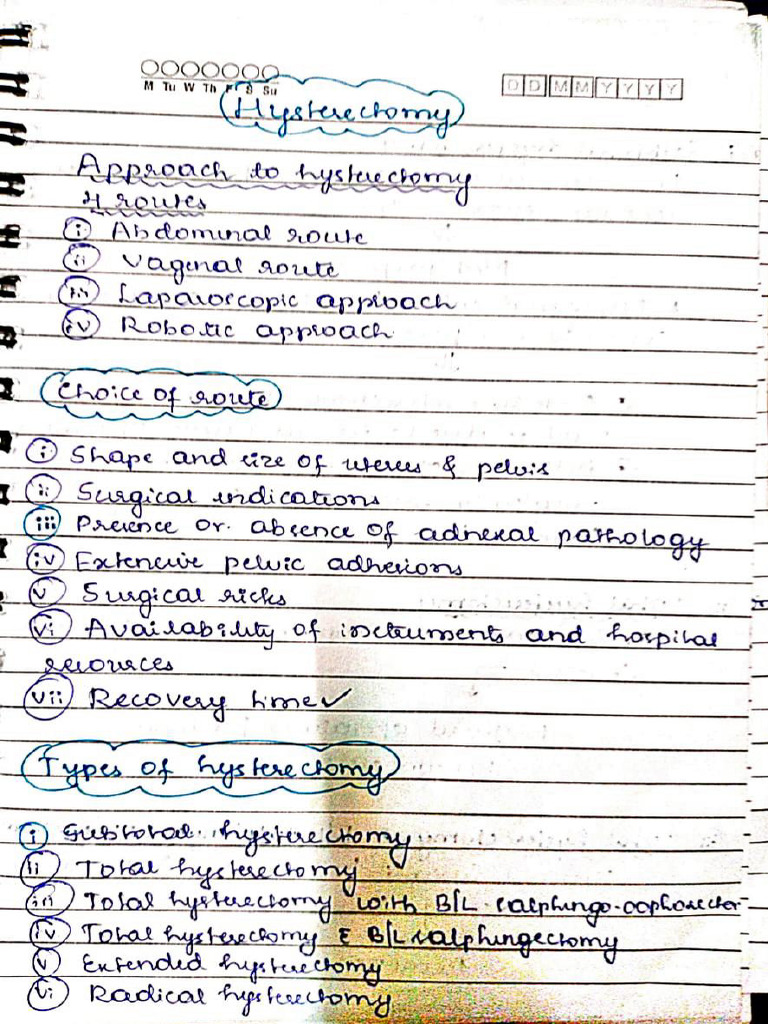 M Tu W Th F S Su
D D M M Y Y Y Y
Hysterectomy
Approach to hysterectomy
4 routes
i Abdominal route
ii Vaginal route
iii Laparoscopic approach
iv Robotic approach
Choice of route
i Shape and size of uterus & pelvis
ii Surgical indications
iii Presence or absence of adnexal pathology
iv Extensive pelvic adhesions
v Surgical risks
vi Availability of instruments and hospital
resources
vii Recovery time ✓
Types of hysterectomy
i Subtotal hysterectomy
ii Total hysterectomy
iii Total hysterectomy with B/L salphingo-oophorector
iv Total hysterectomy c̄ B/L salphingectomy
v Extended hysterectomy
vi Radical hysterectomy